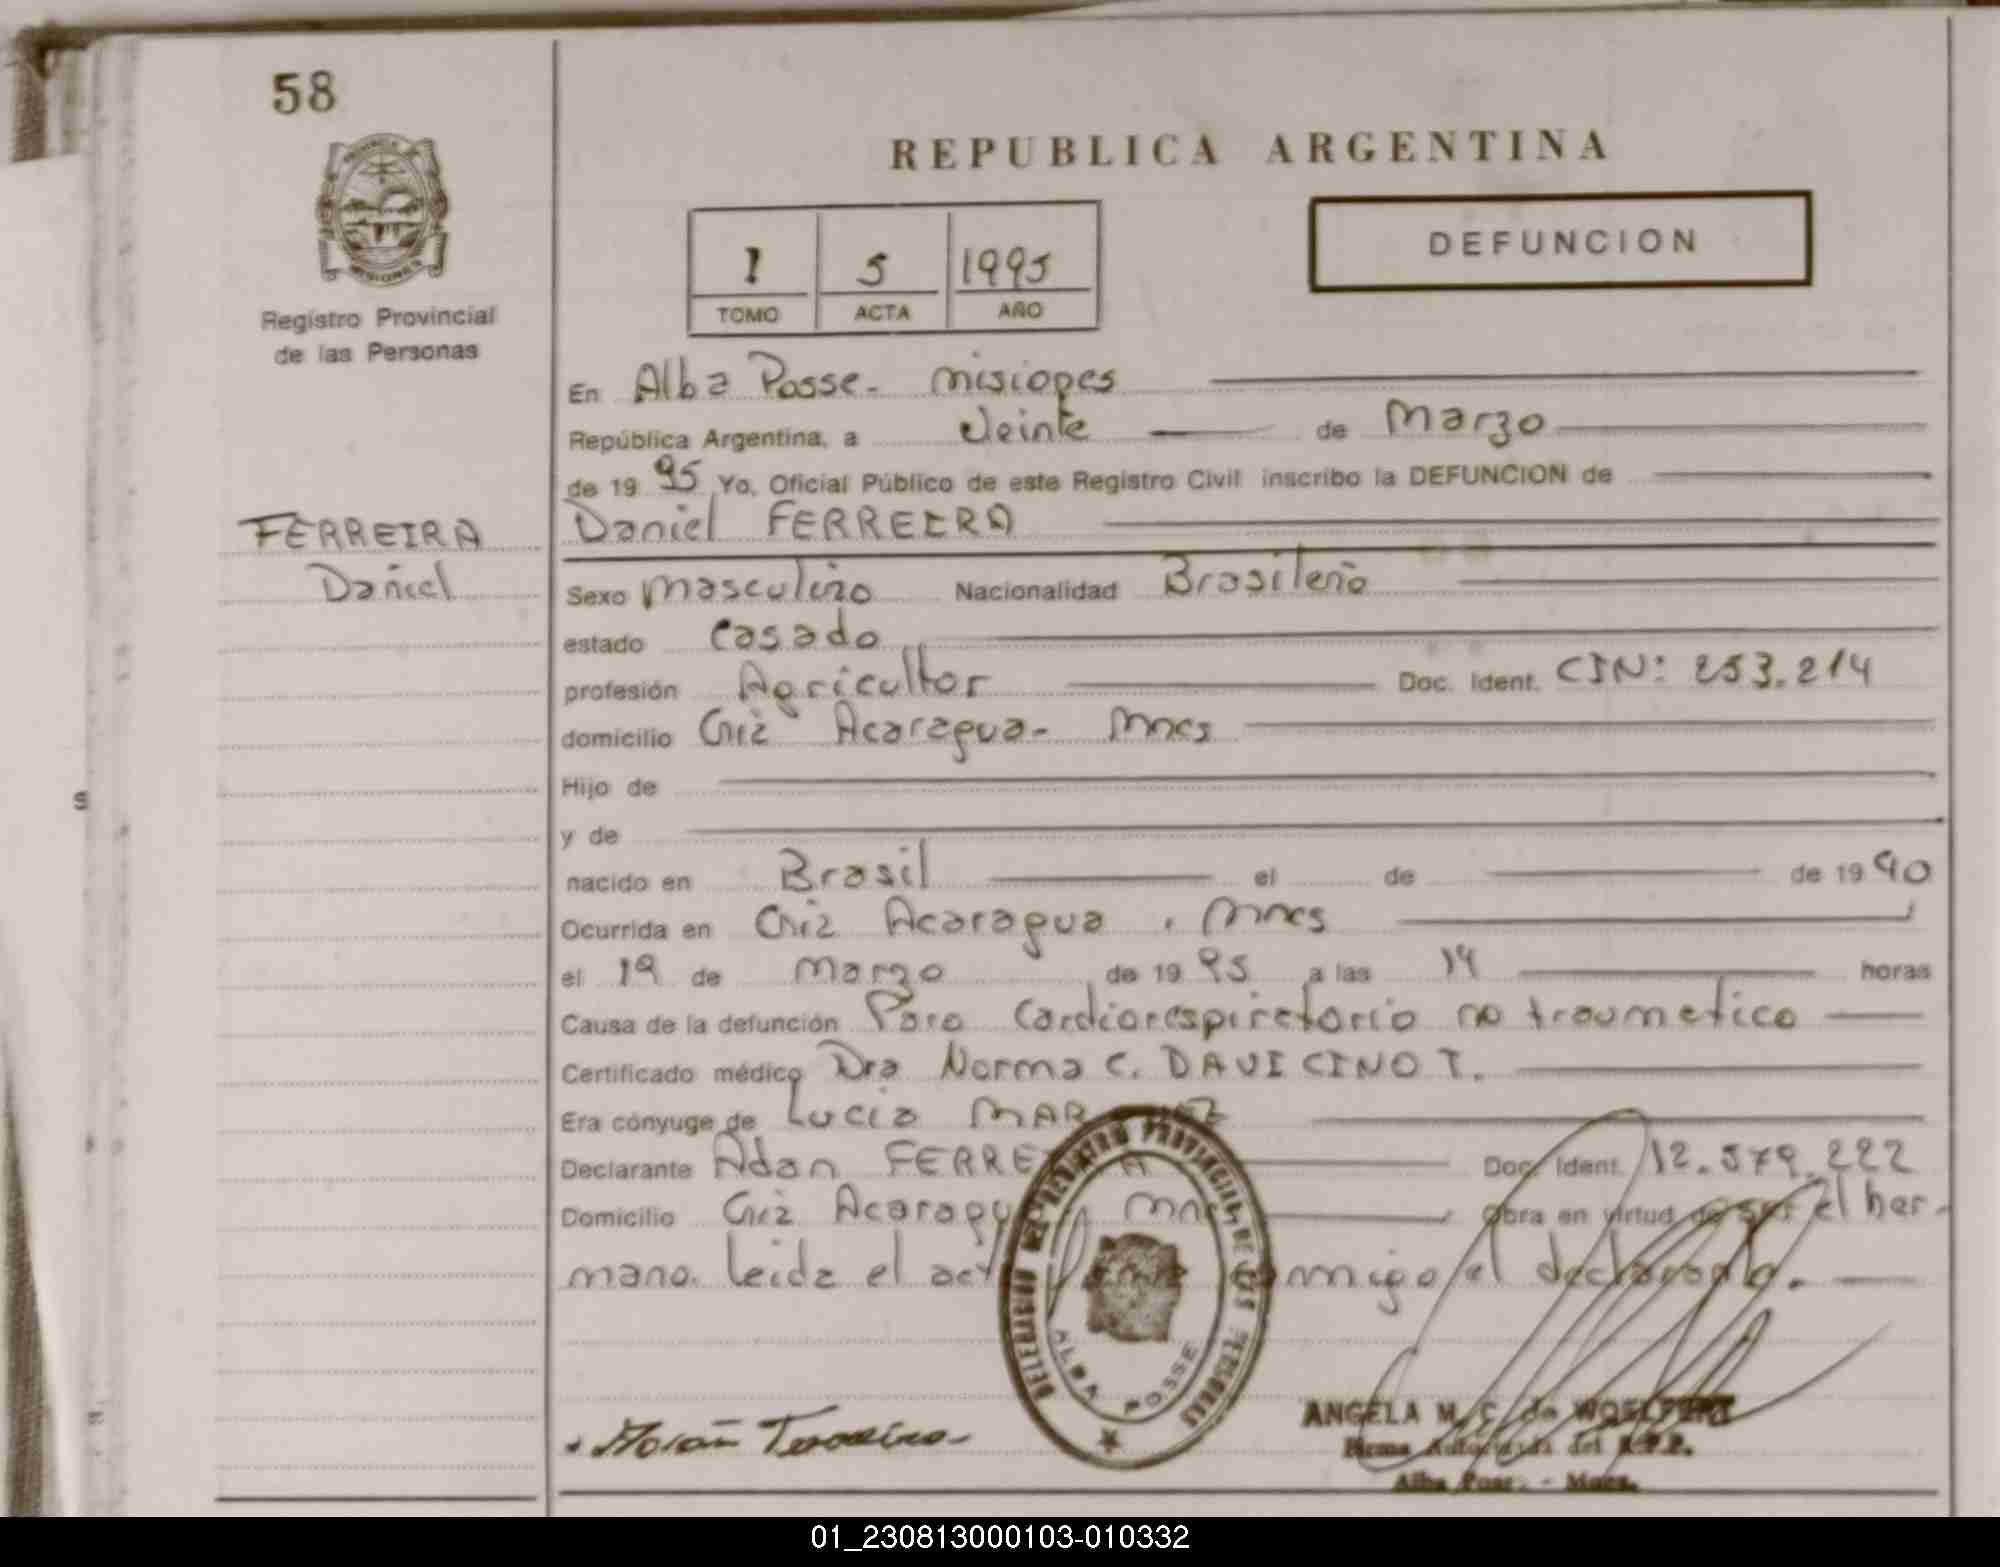 58
REPUBLICA ARGENTINA
DEFUNCION
1 5 1995
TOMO ACTA AÑO
Registro Provincial
de las Personas
En Alba Posse - Misiones
República Argentina, a Veinte de Marzo
de 1995 Yo, Oficial Público de este Registro Civil inscribo la DEFUNCION de
FERREIRA
Daniel
Daniel FERREIRA
Sexo Masculino Nacionalidad Brasileño
estado Casado
profesión Agricultor Doc. Ident. CIN: 253.214
domicilio Acaragua - Mnes
Hijo de
y de
nacido en Brasil el de de 1940
Ocurrida en Acaragua . Mnes
el 19 de Marzo de 1995 a las 14 horas
Causa de la defunción Paro Cardiorespiratorio no traumatico
Certificado médico Dra Norma C. DAVICINO T.
Era cónyuge de Lucia
Declarante Adan FERREIRA Doc. Ident. 12.579.222
Domicilio Mnes Obra en virtud de ser el her-
mano. Leida el acta conmigo el declarante.
DELEGACION DEL REGISTRO PROVINCIAL DE LAS PERSONAS
ALBA POSSE
ANGELA M. C. de
Firma Autorizada del R.P.P.
Alba Posse - Mnes.
01_230813000103-010332